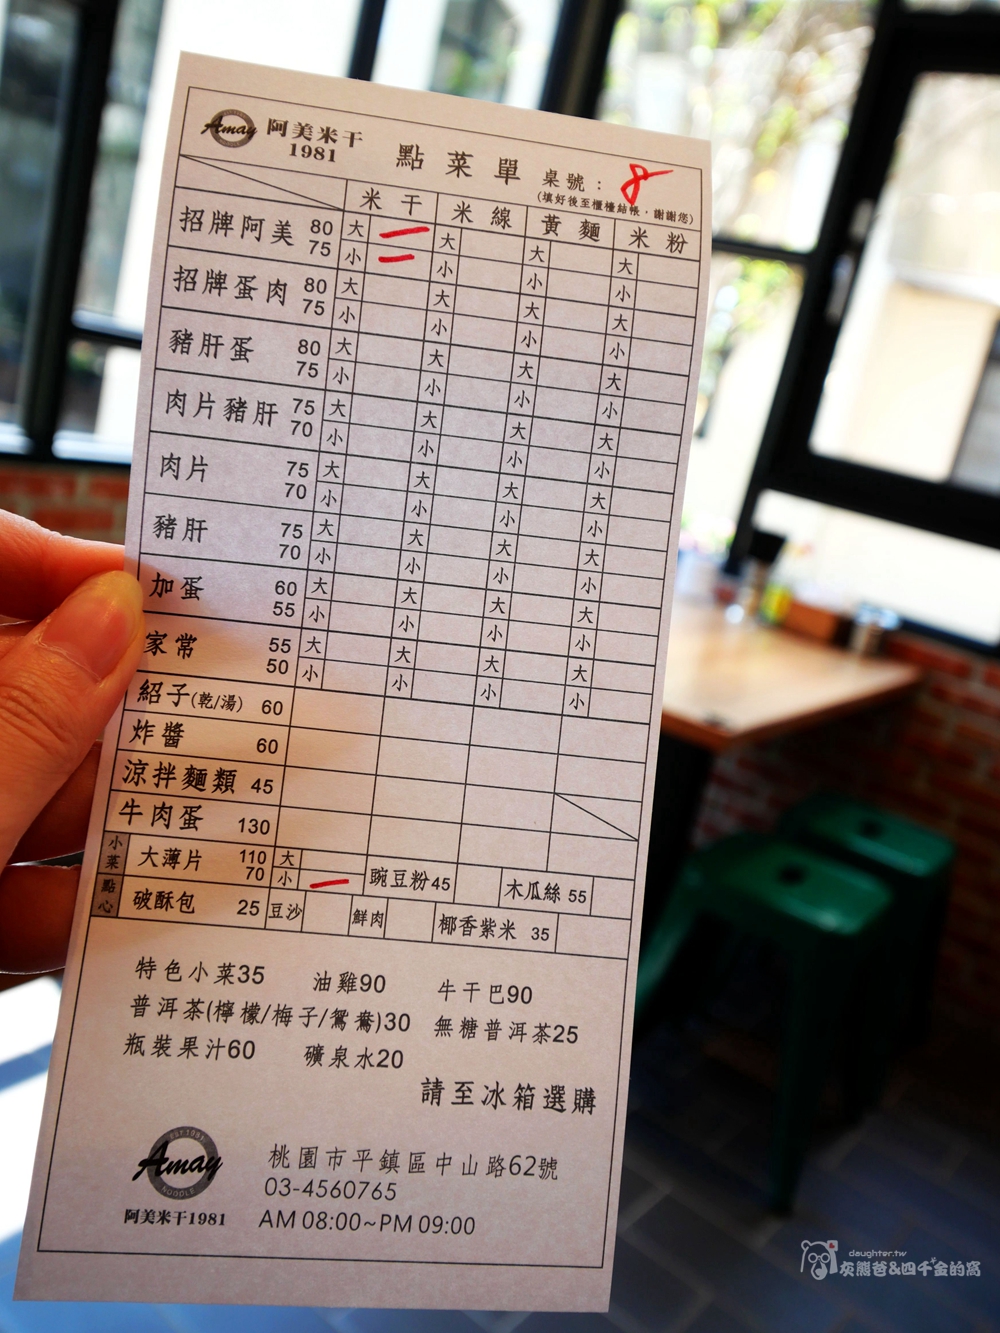 Amay 阿美米干
1981
點菜單 桌號：8
(填好後至櫃檯結帳，謝謝您)
米干 米線 黃麵 米粉
招牌阿美 80 大 大 大 大
75 小 小 小 小
招牌蛋肉 80 大 大 大 大
75 小 小 小 小
豬肝蛋 80 大 大 大 大
75 小 小 小 小
肉片豬肝 75 大 大 大 大
70 小 小 小 小
肉片 75 大 大 大 大
70 小 小 小 小
豬肝 75 大 大 大 大
70 小 小 小 小
加蛋 60 大 大 大 大
55 小 小 小 小
家常 55 大 大 大 大
50 小 小 小 小
紹子(乾/湯) 60
炸醬 60
涼拌麵類 45
牛肉蛋 130
小菜點心
大薄片 110 大
70 小 豌豆粉45 木瓜絲 55
破酥包 25 豆沙 鮮肉 椰香紫米 35
特色小菜35 油雞90 牛干巴90
普洱茶(檸檬/梅子/鴛鴦)30 無糖普洱茶25
瓶裝果汁60 礦泉水20
請至冰箱選購
EST.1981
Amay
NOODLE
阿美米干1981
桃園市平鎮區中山路62號
03-4560765
AM 08:00~PM 09:00
daughter.tw
灰熊爸&四千金的窩